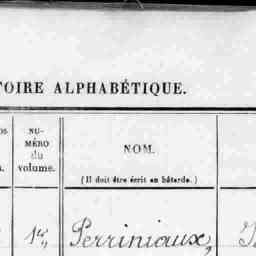 TOIRE ALPHABÉTIQUE.
NU-
MÉRO
du
volume.
NOM.
(Il doit être écrit en bâtarde.)
1er Perriniaux,